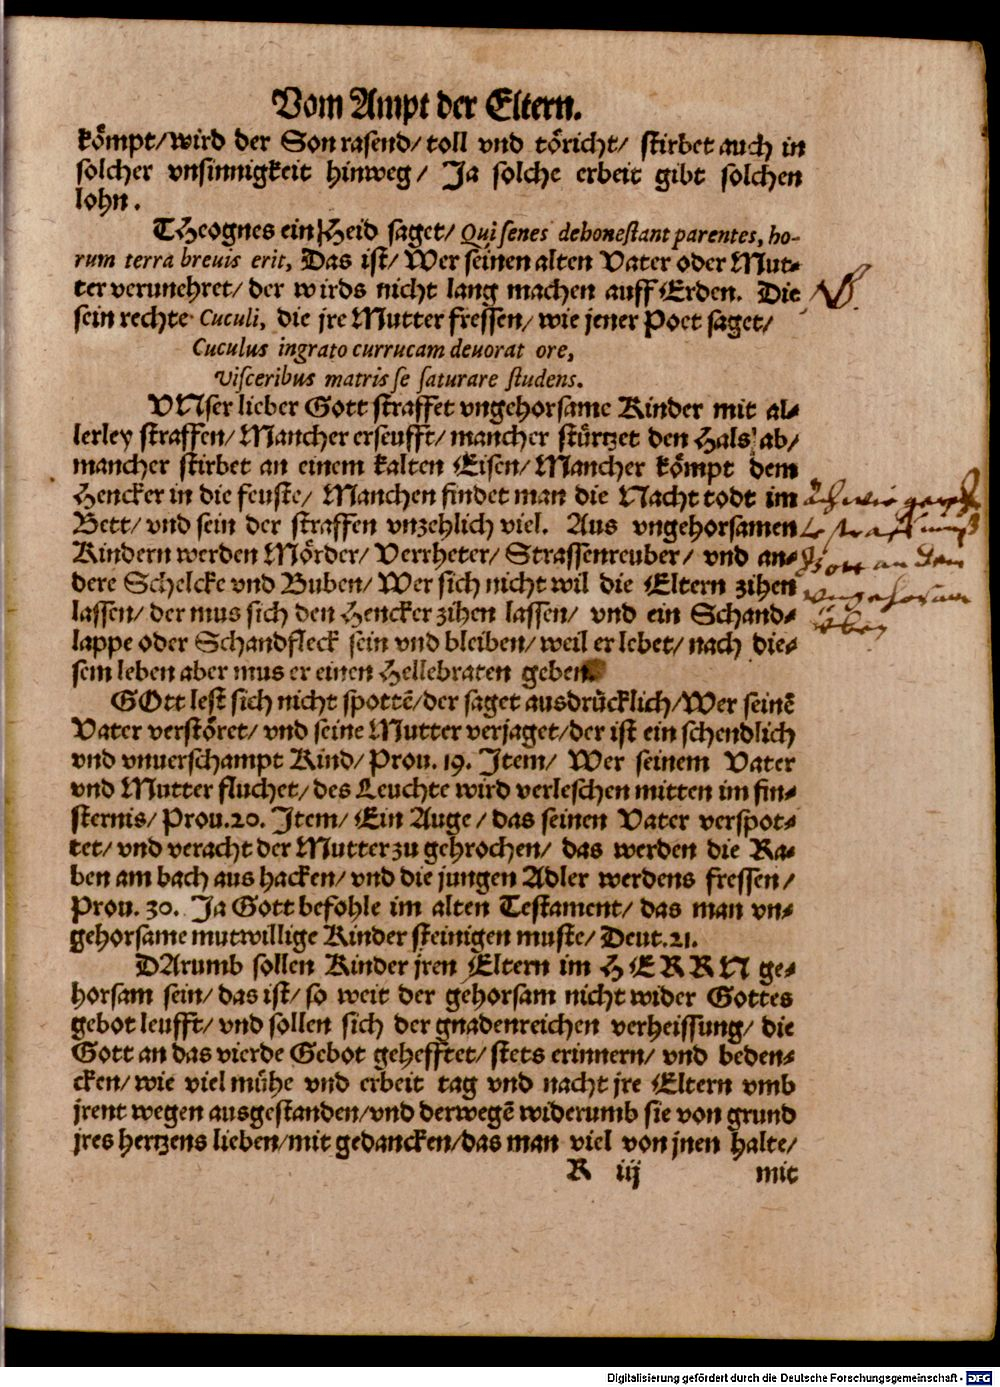 Vom Ampt der Eltern.
kömpt/ wird der Son rasend/ toll vnd töricht/ stirbet auch in
solcher vnsinnigkeit hinweg/ Ja solche erbeit gibt solchen
lohn.
THeognes ein Heid saget/ Qui senes dehonestant parentes, ho-
rum terra breuis erit, Das ist/ Wer seinen alten Vater oder Mut-
ter verunehret/ der wirds nicht lang machen auff Erden. Die
sein rechte Cuculi, die jre Mutter fressen/ wie jener Poet saget/
Cuculus ingrato currucam deuorat ore,
Visceribus matris se saturare studens.
VNser lieber Gott straffet vngehorsame Kinder mit al-
lerley straffen/ Mancher erseufft/ mancher stürtzet den Hals ab/
mancher stirbet an einem kalten Eisen/ Mancher kömpt dem
Hencker in die feuste/ Manchen findet man die Nacht todt im
Bett/ vnd sein der straffen vnzehlich viel. Aus vngehorsamen
Kindern werden Mörder/ Verrheter/ Strassenreuber/ vnd an-
dere Schelcke vnd Buben/ Wer sich nicht wil die Eltern zihen
lassen/ der mus sich den Hencker zihen lassen/ vnd ein Schand-
lappe oder Schandfleck sein vnd bleiben/ weil er lebet/ nach die-
sem leben aber mus er einen Hellebraten geben.
GOtt lest sich nicht spottē/ der saget ausdrücklich/ Wer seinē
Vater verstöret/ vnd seine Mutter verjaget/ der ist ein schendlich
vnd vnuerschampt Kind/ Prou. 19. Item/ Wer seinem Vater
vnd Mutter fluchet/ des Leuchte wird verleschen mitten im fin-
sternis/ Prou. 20. Item/ Ein Auge/ das seinen Vater verspot-
tet/ vnd veracht der Mutter zu gehrochen/ das werden die Ra-
ben am bach aus hacken/ vnd die jungen Adler werdens fressen/
Prou. 30. Ja Gott befohle im alten Testament/ das man vn-
gehorsame mutwillige Kinder steinigen muste/ Deut. 21.
DArumb sollen Kinder jren Eltern im HERRN ge-
horsam sein/ das ist/ so weit der gehorsam nicht wider Gottes
gebot leufft/ vnd sollen sich der gnadenreichen verheissung/ die
Gott an das vierde Gebot gehefftet/ stets erinnern/ vnd beden-
cken/ wie viel mühe vnd erbeit tag vnd nacht jre Eltern vmb
jrent wegen ausgestanden/ vnd derwegē widerumb sie von grund
jres hertzens lieben/ mit gedancken/ das man viel von jnen halte/
R iij mit
NB.
Ach wie
Gott an den
vngehorsam
Digitalisierung gefördert durch die Deutsche Forschungsgemeinschaft - DFG